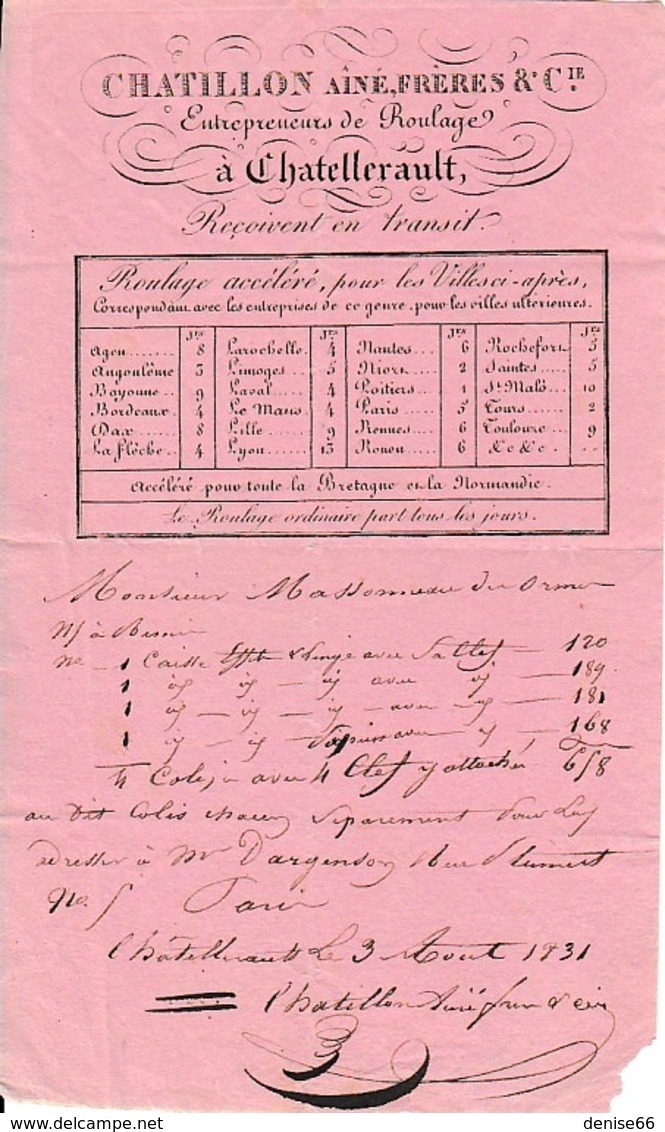 CHATILLON AÎNÉ, FRÈRES & CIE.
Entrepreneurs de Roulage
à Chatellerault,
Reçoivent en transit.
Roulage accéléré, pour les Villes ci-après,
Correspondant avec les entreprises de ce genre pour les villes ultérieures.
Jrs Jrs Jrs Jrs
Agen....... 8 Larochelle. 4 Nantes... 6 Rochefort 5
Angoulême 3 Limoges .. 5 Niort.... 2 Saintes.... 5
Bayonne.. 9 Laval..... 4 Poitiers.. 1 St. Malo.. 10
Bordeaux. 4 Le Mans.. 4 Paris.... 5 Tours...... 2
Dax...... 8 Lille...... 9 Rennes.. 6 Toulouse.. 9
La Flèche.. 4 Lyon..... 13 Rouen... 6 &c &c.. ..
Accéléré pour toute la Bretagne et la Normandie.
Le Roulage ordinaire part tous les jours.
Monsieur Massonneau des Ormes
No 1 Caisse Effets & linge avec sa Clef — 120
1 id — id — id avec id — 189
1 id — id — id — avec — id — 181
1 id — id avec id — 168
4 Colis avec 4 Clef y attaché 658
au dit Colis chacun séparément pour les
adresser à Mr Dargenson Rue
No. 5 Paris
Châtellerault Le 3 Aout 1831
Chatillon Ainé frères & cie
denise66